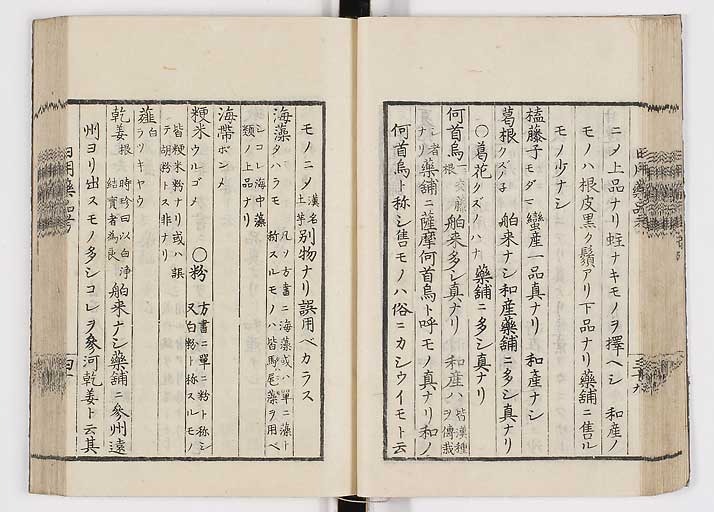 ニメ上品ナリ蛀ナキモノヲ擇ヘシ　和産ノ
モノハ根皮黒ク鬚アリ下品ナリ藥舗ニ售ル
モノ少ナシ
榼藤子モダマ　蠻産一品真ナリ　和産ナシ
葛根クズノ子　舶来ナシ和産藥舗ニ多シ真ナリ
〇葛花クズノハナ　藥舗ニ多シ真ナリ
何首烏根一交藤　舶来多シ真ナリ　和産ハ皆漢種ヲ傳栽
シ者ナリ藥舗ニ薩摩何首烏ト呼モノ真ナリ和ノ
何首烏ト称シ售モノハ俗ニカシウイモト云
モノニメ漢名土芋別物ナリ誤用ベカラス
海藻タハラモ　凡ソ方書ニ海藻或ハ單ニ藻ト
称スルモノハ皆馬尾藻ヲ用ベ
シコレ海中藻
類ノ上品ナリ
海帶ボンメ
粳米ウルゴメ　〇粉　方書ニ單ニ粉ト称シ
又白粉ト称スルモノ
皆粳米粉ナリ或ハ誤
テ胡粉トス非ナリ
薤白ラツキヤウ
乾姜根　時珍曰以白淨結實者為良　舶来ナシ藥舗ニ參州遠
州ヨリ出スモノ多シコレヲ參河乾姜ト云其
日用藥品考